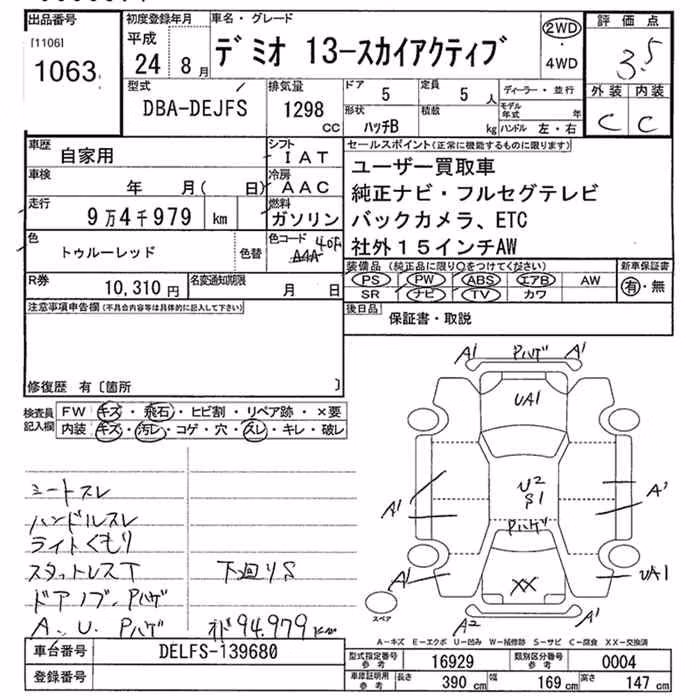 出品番号
[1106]
1063
初度登録年月
平成
24 8月
車名・グレード
デミオ 13-スカイアクティブ
2WD
・
4WD
評価点
3.5
外装 内装
C C
型式
DBA-DEJFS
排気量
1298
CC
ドア
5
定員
5 人
形状
ハッチB
積載
kg
ディーラー・並行
モデル年式 年
ハンドル 左・右
車歴
自家用
シフト
IAT
車検
年 月( 日)
冷房
AAC
走行
9万4千979 km
燃料
ガソリン
色
トゥルーレッド
色替
色コード
R券
10,310 円
名変通知期限
月 日
セールスポイント(正常に機能するものに限ります)
ユーザー買取車
純正ナビ・フルセグテレビ
バックカメラ、ETC
社外15インチAW
装備品(純正品に限り○をつけてください)
新車保証書
PS PW ABS エアB AW
SR ナビ TV カワ
有・無
後日品
保証書・取説
注意事項申告欄(不具合内容等は具体的に記入して下さい)
修復歴 有〔箇所 〕
検査員
記入欄
FW キズ・飛石・ヒビ割・リペア跡・×要
内装 キズ・汚レ・コゲ・穴・スレ・キレ・破レ
シートスレ
ハンドルスレ
ライトくもり
スタットレスT 下廻りS
ドアノブ.Pハゲ
A.、U. Pハゲ
94.979km
A1 Pハゲ A1
UA1
U2
S1
A1 A1
Pハゲ
A1 XX UA1
A2 A1
スペア
A-キズ E-エクボ U-凹み W-補修跡 S-サビ C-腐食 XX-交換済
車台番号
DELFS-139680
登録番号
型式指定番号
参考
16929
類別区分番号
参考
0004
車庫証明用
参考
長さ 390 cm
幅 169 cm
高さ 147 cm